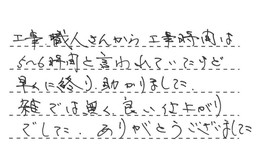 工事職人さんから工事時間は
5〜6時間と言われていたけど
早くに終り助かりました
雑では無く良い仕上がり
でした。ありがとうございました